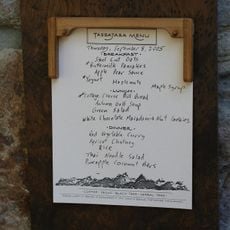 TASSAJARA MENU
Thursday, September 8, 2005
BREAKFAST:
Steel Cut Oats
*Buttermilk Pancakes
Apple Pear Sauce
Maple Syrup
*Yogurt Maplenuts
LUNCH:
*Cottage Cheese Dill Bread
Autumn Deli Soup
Green Salad
White Chocolate Macadamia Nut Cookies
DINNER:
Red Vegetable Curry
Apricot Chutney
Rice
Thai Noodle Salad
Pineapple Coconut Bars
COFFEE DECAF BLACK TEA HERBAL TEAS